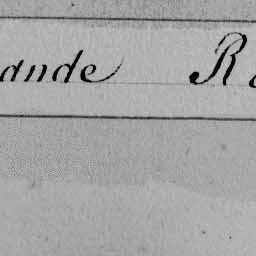 ande R